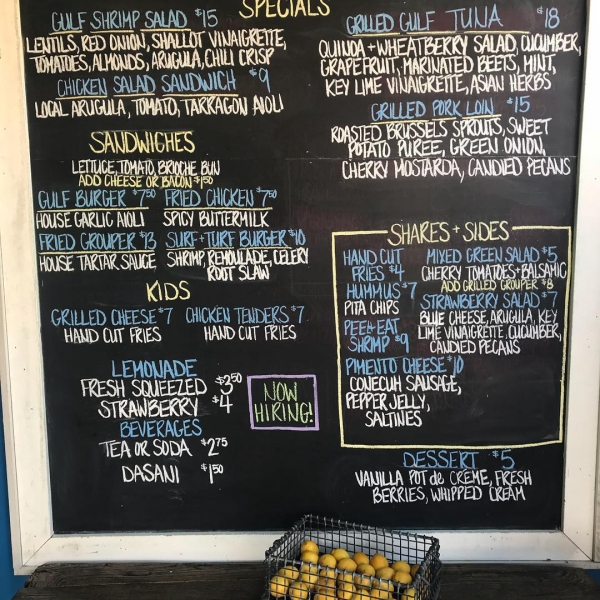 SPECIALS
GULF SHRIMP SALAD $15
LENTILS, RED ONION, SHALLOT VINAIGRETTE,
TOMATOES, ALMONDS, ARUGULA, CHILI CRISP
CHICKEN SALAD SANDWICH $9
LOCAL ARUGULA, TOMATO, TARRAGON AIOLI
GRILLED GULF TUNA $18
QUINOA + WHEATBERRY SALAD, CUCUMBER,
GRAPEFRUIT, MARINATED BEETS, MINT,
KEY LIME VINAIGRETTE, ASIAN HERBS
GRILLED PORK LOIN $15
ROASTED BRUSSELS SPROUTS, SWEET
POTATO PUREE, GREEN ONION,
CHERRY MOSTARDA, CANDIED PECANS
SANDWICHES
LETTUCE, TOMATO, BRIOCHE BUN
ADD CHEESE OR BACON $1.50
GULF BURGER $7.50
HOUSE GARLIC AIOLI
FRIED CHICKEN $7.50
SPICY BUTTERMILK
FRIED GROUPER $13
HOUSE TARTAR SAUCE
SURF + TURF BURGER $10
SHRIMP, REMOULADE, CELERY
ROOT SLAW
KIDS
GRILLED CHEESE $7
HAND CUT FRIES
CHICKEN TENDERS $7
HAND CUT FRIES
LEMONADE
FRESH SQUEEZED $3.50
STRAWBERRY $4
BEVERAGES
TEA OR SODA $2.75
DASANI $1.50
NOW
HIRING!
SHARES + SIDES
HAND CUT
FRIES $4
HUMMUS $7
PITA CHIPS
PEEL + EAT
SHRIMP $9
PIMENTO CHEESE $10
CONECUH SAUSAGE,
PEPPER JELLY,
SALTINES
MIXED GREEN SALAD $5
CHERRY TOMATOES + BALSAMIC
ADD GRILLED GROUPER $8
STRAWBERRY SALAD $7
BLUE CHEESE, ARUGULA, KEY
LIME VINAIGRETTE, CUCUMBER,
CANDIED PECANS
DESSERT $5
VANILLA POT de CRÈME, FRESH
BERRIES, WHIPPED CREAM